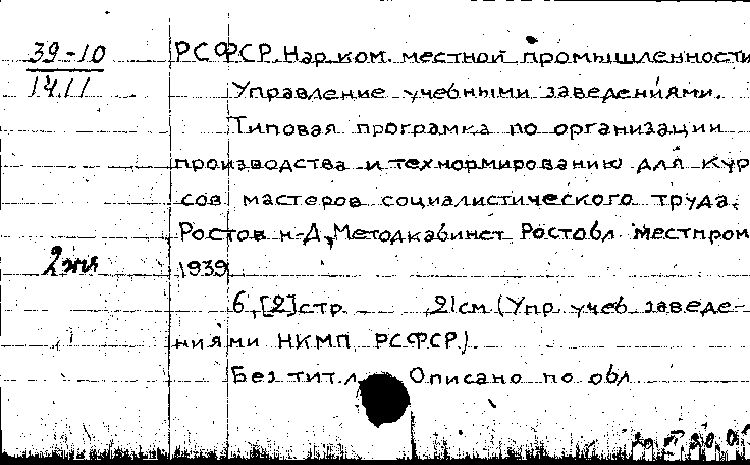 39-10
14.11
РСФСР. Нар. ком. местной промышленности
Управление учебными заведениями.
Типовая программа по организации
производства и технормированию для кур
сов мастеров социалистического труда.
Ростов н-Д, Методкабинет Ростобл местпром
2 экз
1939
6, [2] стр. 21 см (Упр. учеб. заведе-
ниями НКМП РСФСР).
Без тит. л. Описано по обл